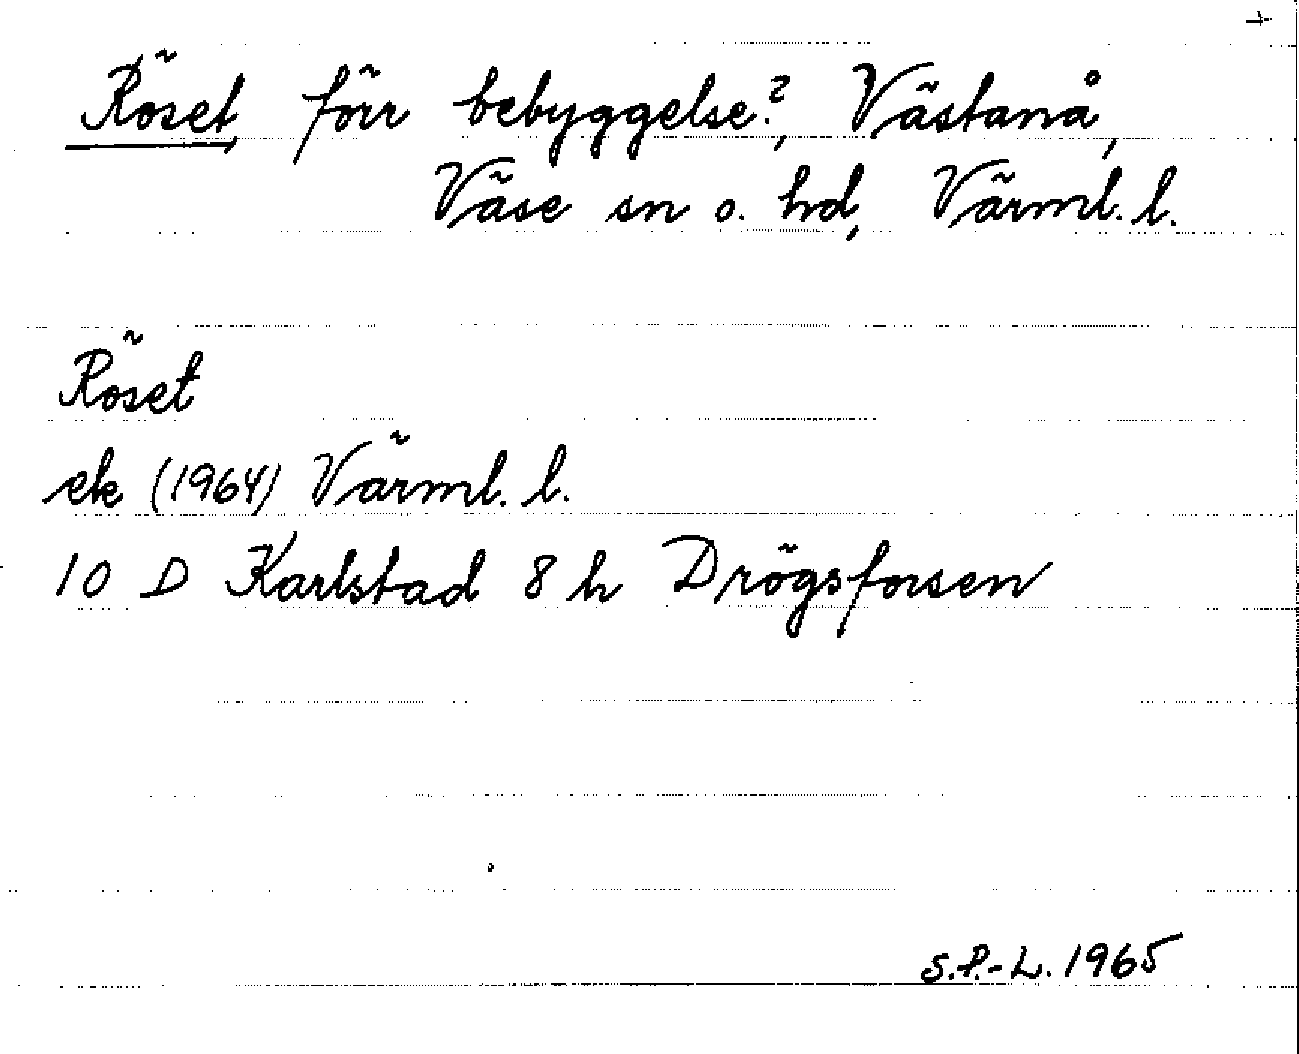 Röset, förr bebyggelse?, Västanå,
Väse sn o. hd, Värml. l.
Röset
ek (1964) Värml. l.
10 D Karlstad 8 h Drögsforsen
S.P.-L. 1965